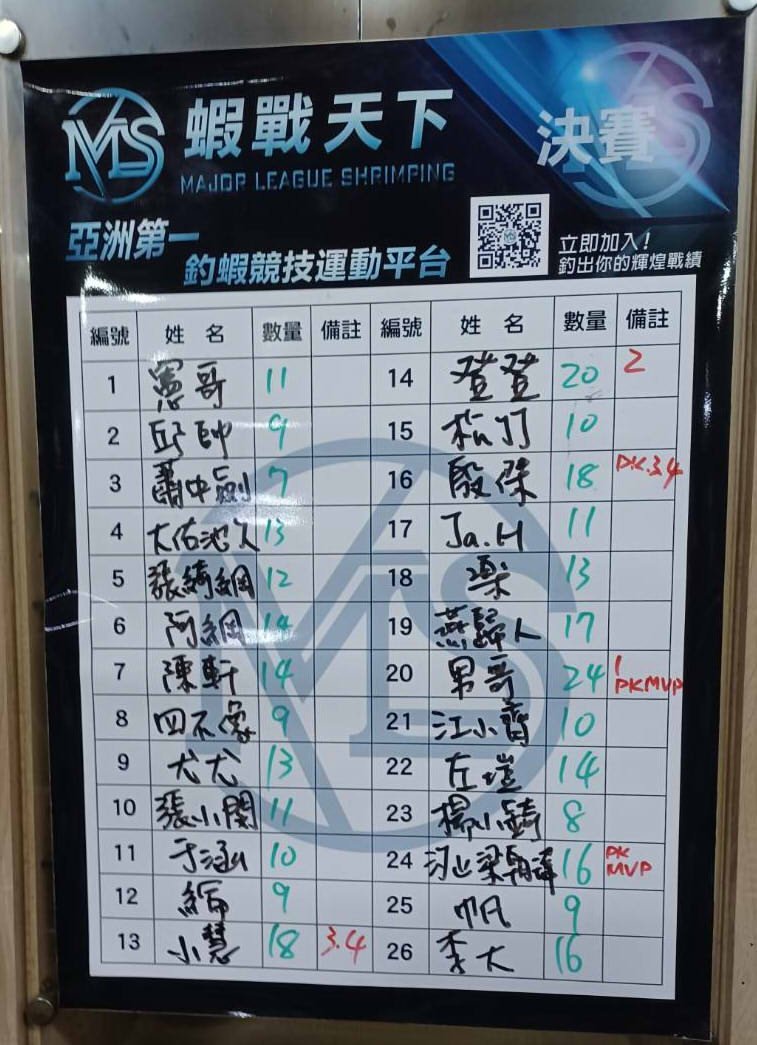 MS 蝦戰天下 決賽
MAJOR LEAGUE SHRIMPING
亞洲第一
釣蝦競技運動平台
立即加入!
釣出你的輝煌戰績
編號 姓名 數量 備註 編號 姓名 數量 備註
1 憲哥 11 14 登登 20 2
2 邱帥 9 15 松竹 10
3 蕭中劍 7 16 殷傑 18 P.K.3.4
4 大佑池人 13 17 Ja.H 11
5 張綺綱 12 18 樂 13
6 阿綱 14 19 燕歸人 17
7 陳軒 14 20 男哥 24 1 PKMVP
8 四不像 9 21 江小齊 10
9 尤尤 13 22 左塏 14
10 張小閔 11 23 楊小錡 8
11 于涵 10 24 梁 16 PK MVP
12 9 25 帆 9
13 小慧 18 3.4 26 李大 16